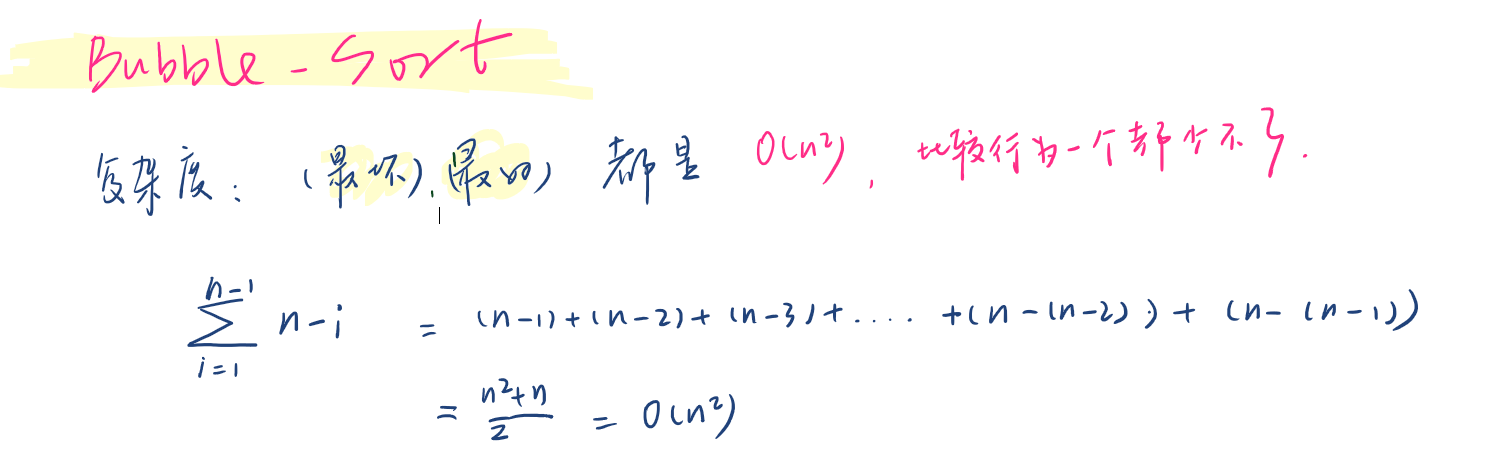 Bubble-Sort
复杂度：（最坏）、（最好）都是 O(n²)，比较行为一个都少不了.
\sum_{i=1}^{n-1} n-i = (n-1)+(n-2)+(n-3)+....+(n-(n-2))+(n-(n-1))
= \frac{n²+n}{2} = O(n²)